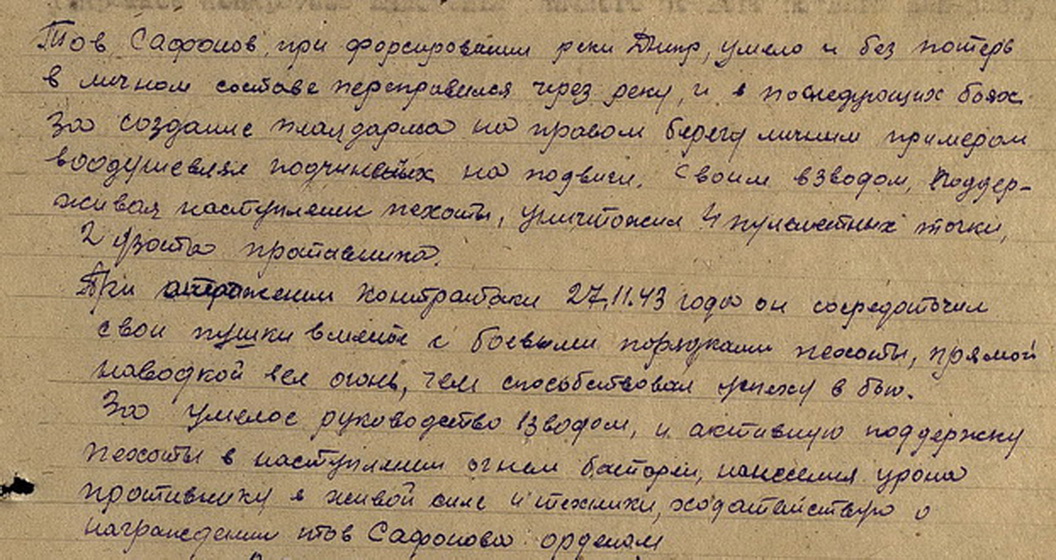 Тов Сафонов, при форсировании реки Днепр, умело и без потерь
в личном составе переправился через реку, и в последующих боях
За создание плацдарма на правом берегу личным примером
воодушевлял подчиненых на подвиги. Своим взводом, поддер-
живая наступление пехоты, уничтожил 4 пулеметных точки,
2 дзота противника.
При отражении контратаки 27.11.43 года он сосредоточил
свои пушки вместе с боевыми порядками пехоты, прямой
наводкой вел огонь, чем способствовал успеху в бою.
За умелое руководство взводом, и активную поддержку
пехоты в наступлении огнем батареи, нанесения урона
противнику в живой силе и техники, ходатайствую о
награждении тов Сафонова орденом